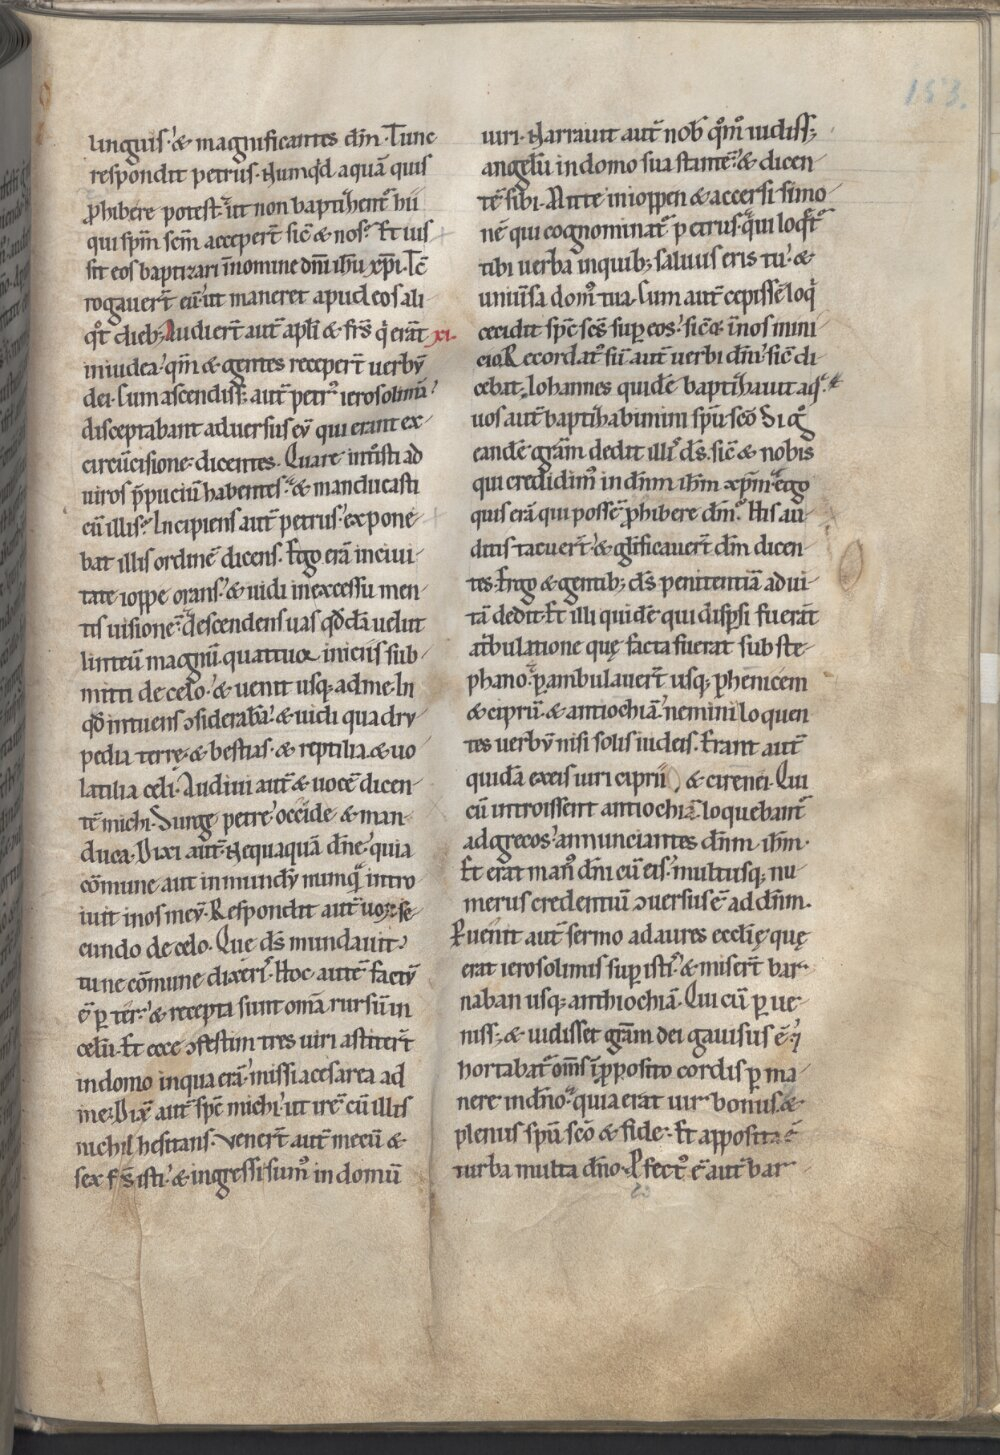 153.
linguis. & magnificantes dm̄. Tunc
respondit petrus. Numq̇d aquā quis
ꝓhibere potest. ut non baptizent᷑ hii
qui sp̄m sc̄m accepert̄ sic̄ & nos? Et ius
sit eos baptizari in nomine dn̄i ih̄u xp̄i. Tc̄
rogauert̄ eū. ut maneret apud eos ali
qͦt dieb; Audiert̄ aut̄ apl̄i & fr̄s q̇ erāt xi.
in iudea. qm̄ & gentes recepert̄ uerbū
dei. Cum ascendiss; aut̄ petrꝰ ierosolimā.
disceptabant aduersus eū qui erant ex
circūcisione. dicentes. Quare introisti ad
uiros p̄puciū habentes. & manducasti
cū illis? Incipiens aut̄ petrus. expone
bat illis ordinē dicens. Ego erā in ciui
tate ioppe orans. & uidi in excessu men
tis uisionē. descendens uas qd̄dā uelut
linteū magnū. quattuor iniciis sub
mitti de celo. & uenit usq; ad me. In
qd̄ intuens ɔsiderabā. & uidi quadru
pedia terrę. & bestias. & reptilia. & uo
latilia celi. Audiui aut̄ & uocē dicen
tē michi. Surge petre. occide & man
duca. Dixi aut̄. Nequaquā dn̄e. quia
cōmune aut inmundū nunqͣ intro
iuit in os meū. Respondit aut̄ uox se
cundo de celo. Que ds̄ mundauit.
tu ne cōmune dixeris. Hoc autē factū
ē ꝑ ter. & recepta sunt om̄a rursū in
celū. Et ecce ɔfestim tres uiri astitert̄
in domo in qua erā. missi a cesarea ad
me. Dix̄ aut̄ sp̄c michi. ut irē cū illis
nichil hesitans. Venert̄ aut̄ mecū &
sex fr̄s isti. & ingressi sumꝰ in domū
uiri. Narrauit aut̄ nob̄ qͦm̄ uidiss;
angelū in domo sua stantē. & dicen
tē sibi. Mitte in ioppen & accersi simo
nē qui cognominat᷑ petrus. qui loqͣt᷑
tibi uerba in quib; saluus eris tu. &
uniūsa domꝰ tua. Cum aut̄ cepissē loq̇
cecidit sp̄c sc̄s sup eos. sicͣ in nos in ini
cio. Recordat᷑ sū aut̄ uerbi dn̄i. sic̄ di
cebat. Iohannes quidē baptizauit aqͣ.
uos aut̄ baptizabimini sp̄u sc̄o. Si ḡ
eandē grām dedit illis ds̄. sic̄ & nobis
qui credidimꝰ in dn̄m ih̄m xp̄m. ego
quis erā qui possē ꝓhibere dm̄? His au
ditis tacuert̄. & gl̄ificauert̄ dm̄ dicen
tes. Ergo & gentib; ds̄ penitentiā ad ui
tā dedit. Et illi quidē qui disp̄si fuerāt
a t͛bulatione quę facta fuerat sub ste
phano. ꝑambulauert̄ usq; phenicem
& ciprū. & antiochiā. nemini loquen
tes uerbū nisi solis iudeis. Erant aut̄
quidā ex eis uiri ciprii & cirenei. Qui
cū introissent antiochiā. loquebant᷑
ad grecos. annunciantes dn̄m ih̄m.
Et erat manꝰ dn̄i cū eis. multusq; nu
merus credentiū ɔuersus ē ad dn̄m.
Puenit aut̄ sermo ad aures ecclię quę
erat ierosolimis sup istis. & misert̄ bar
naban usq; anthiochiā. Qui cū ꝑue
niss; & uidisset grām dei gauisus ē. ⁊
hortabat᷑ om̄s in ꝓposito cordis ꝑma
nere in dn̄o. quia erat uir bonus. &
plenus sp̄u sc̄o & fide. Et apposita ē
turba multa dn̄o. Pfectꝰ ē aut̄ bar